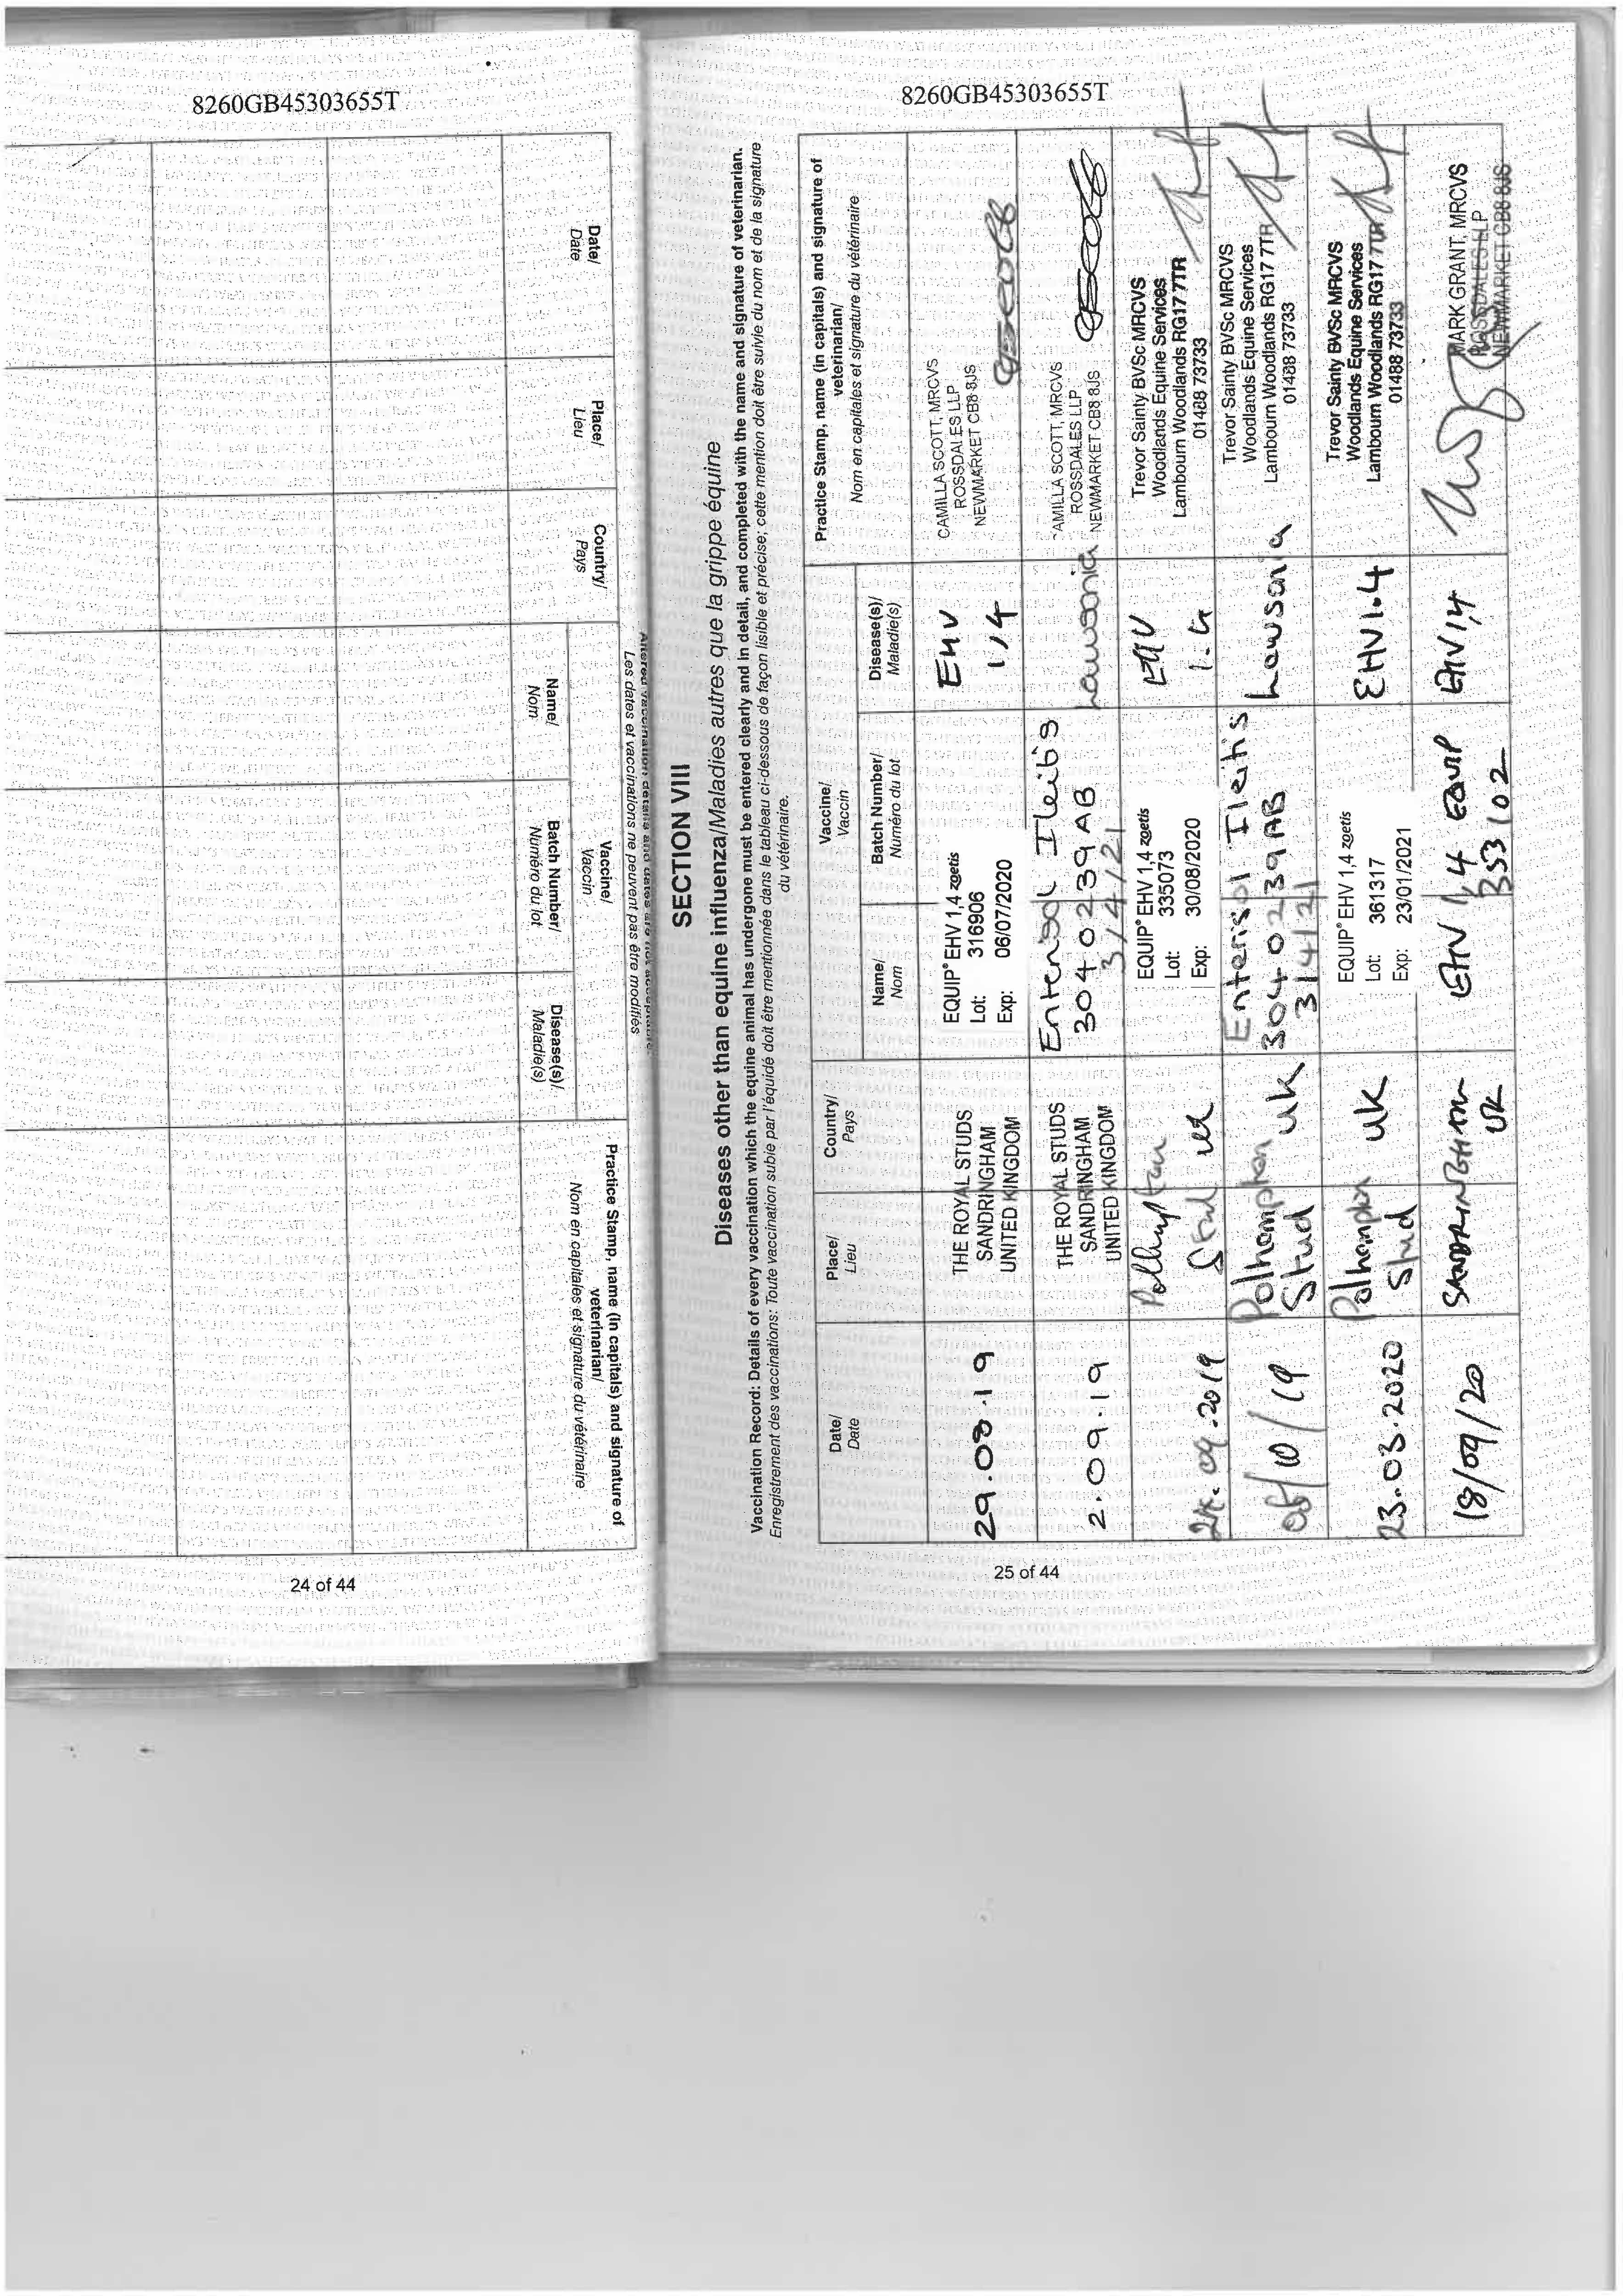 8260GB45303655T
Altered vaccination details and dates are not acceptable.
Les dates et vaccinations ne peuvent pas être modifiés
Date/
Date
Place/
Lieu
Country/
Pays
Vaccine/
Vaccin
Name/
Nom
Batch Number/
Numéro du lot
Disease(s)/
Maladie(s)
Practice Stamp, name (in capitals) and signature of
veterinarian/
Nom en capitales et signature du vétérinaire
24 of 44
8260GB45303655T
SECTION VIII
Diseases other than equine influenza/Maladies autres que la grippe équine
Vaccination Record: Details of every vaccination which the equine animal has undergone must be entered clearly and in detail, and completed with the name and signature of veterinarian.
Enregistrement des vaccinations: Toute vaccination subie par l'équidé doit être mentionnée dans le tableau ci-dessous de façon lisible et précise; cette mention doit être suivie du nom et de la signature
du vétérinaire.
Date/
Date
Place/
Lieu
Country/
Pays
Vaccine/
Vaccin
Name/
Nom
Batch Number/
Numéro du lot
Disease(s)/
Maladie(s)
Practice Stamp, name (in capitals) and signature of
veterinarian/
Nom en capitales et signature du vétérinaire
29.08.19
THE ROYAL STUDS
SANDRINGHAM
UNITED KINGDOM
EQUIP® EHV 1,4 zoetis
Lot: 316906
Exp: 06/07/2020
EHV
1,4
CAMILLA SCOTT, MRCVS
ROSSDALES LLP
NEWMARKET CB8 8JS
2.09.19
THE ROYAL STUDS
SANDRINGHAM
UNITED KINGDOM
Enterisol Ileitis
304 0239AB
3/4/21
Lawsonia
AMILLA SCOTT, MRCVS
ROSSDALES LLP
NEWMARKET CB8 8JS
24.09.2019
Polhampton
Stud UK
EQUIP® EHV 1,4 zoetis
Lot: 335073
Exp: 30/08/2020
EHV
1.4
Trevor Sainty BVSc MRCVS
Woodlands Equine Services
Lambourn Woodlands RG17 7TR
01488 73733
05/10/19
Polhampton
Stud UK
Enterisol Ileitis
304 0239AB
3/4/21
Lawsonia
Trevor Sainty BVSc MRCVS
Woodlands Equine Services
Lambourn Woodlands RG17 7TR
01488 73733
23.03.2020
Polhampton
Stud UK
EQUIP® EHV 1,4 zoetis
Lot: 361317
Exp: 23/01/2021
EHV1.4
Trevor Sainty BVSc MRCVS
Woodlands Equine Services
Lambourn Woodlands RG17 7TR
01488 73733
18/09/20
SANDRINGHAM
UK
EHV 1,4 EQUIP
353102
EHV1,4
MARK GRANT, MRCVS
ROSSDALES LLP
NEWMARKET CB8 8JS
25 of 44